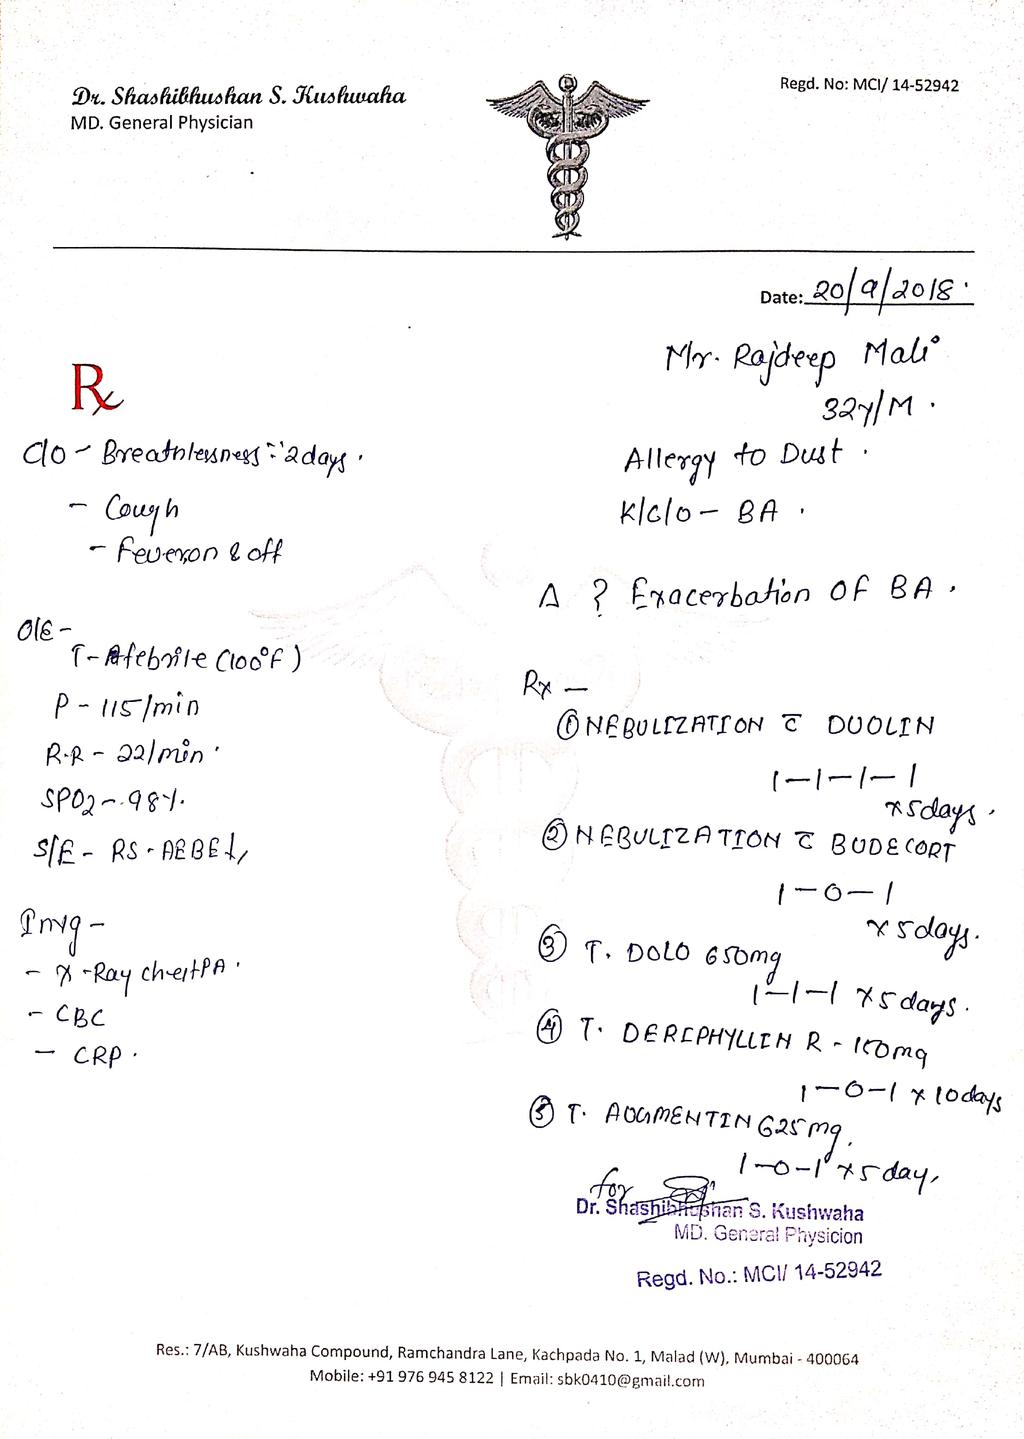 Dr. Shashibhushan S. Kushwaha
MD. General Physician
Regd. No: MCI/ 14-52942
Date: 20/9/2018.
Mr. Rajdeep Mali
32y/M.
Allergy to Dust.
K/C/O - BA.
Δ ? Exacerbation OF BA.
Rx
C/O - Breathlessness :- 2days.
- Cough
- Fever on & off
O/E -
T - Afebrile (100°F)
P - 115/min
R.R - 22/min.
SPO2 - 98%.
S/E - RS - AEBE↓,
Invg -
- X-Ray chest PA.
- CBC
- CRP.
Rx -
① NEBULIZATION c̄ DUOLIN
1-1-1-1
x 5days.
② NEBULIZATION c̄ BUDECORT
1-0-1
x 5days.
③ T. DOLO 650mg
1-1-1 x 5days.
④ T. DERIPHYLLIN R - 150mg
1-0-1 x 10days
⑤ T. AUGMENTIN 625mg.
1-0-1 x 5day,
for
Dr. Shashibhushan S. Kushwaha
MD. General Physicion
Regd. No.: MCI/ 14-52942
Res.: 7/AB, Kushwaha Compound, Ramchandra Lane, Kachpada No. 1, Malad (W), Mumbai - 400064
Mobile: +91 976 945 8122 | Email: sbk0410@gmail.com